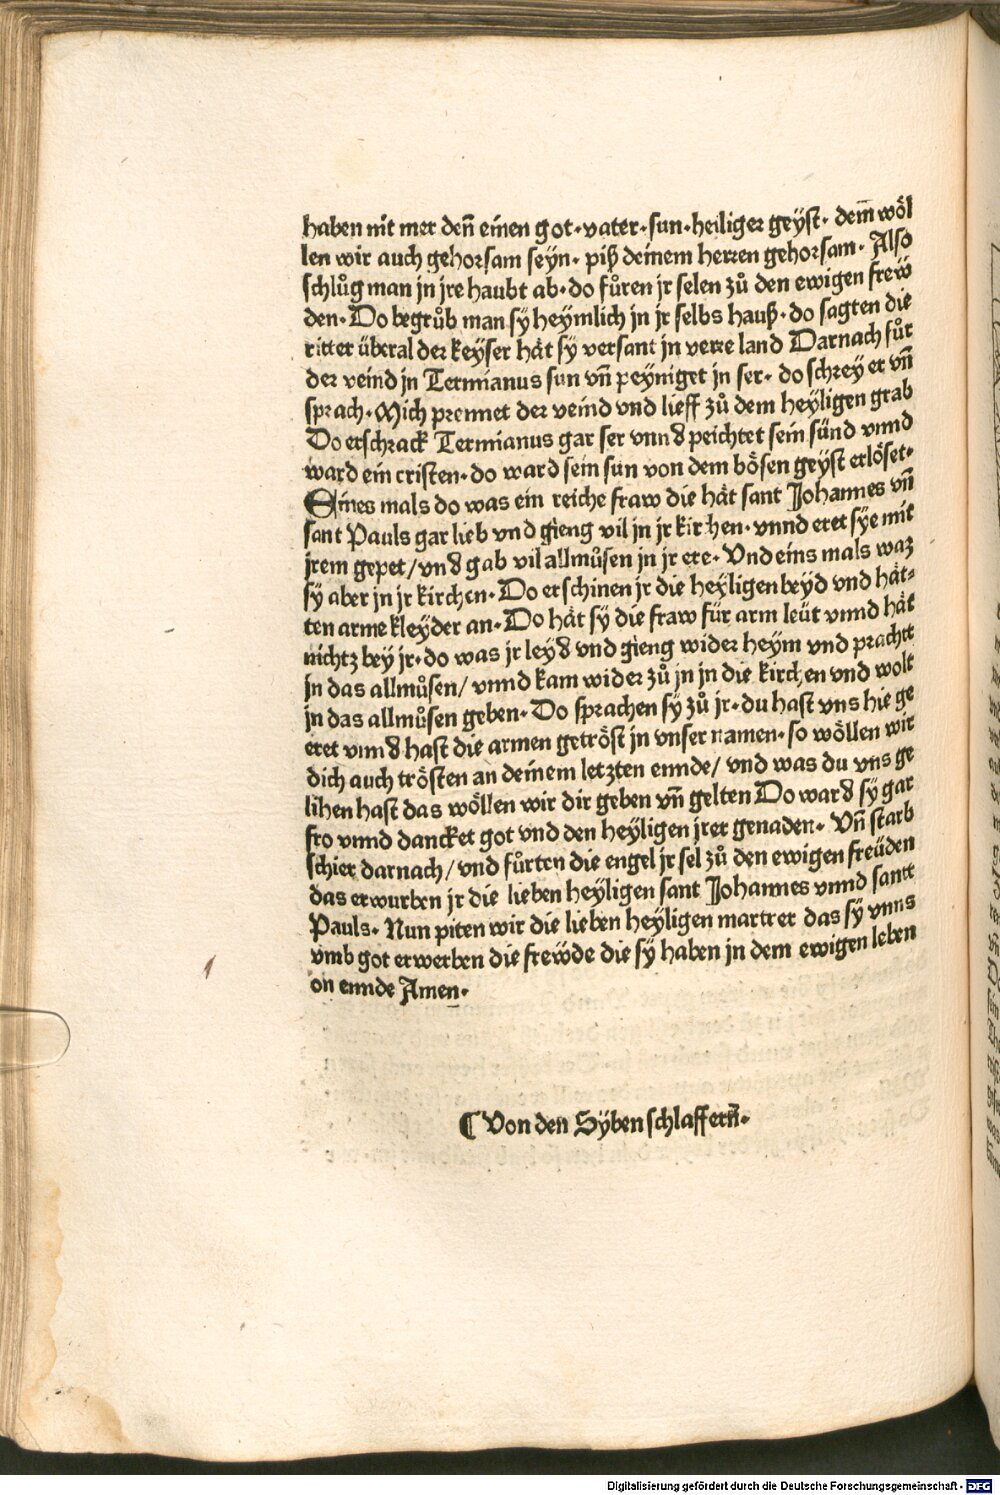 haben nit mer deñ einen got·vater·sun·heiliger geÿst· dem̃ wöl
len wir auch gehorsam seÿn· piß deinem herren gehorsam· Also
schlůg man jn jre haubt ab·do fůren jr selen zů den ewigen frew̎
den·Do begrůb man sÿ heÿmlich jn jr selbs hauß·do sagten die
ritter überal der keÿser hät sÿ versant jn verre land Darnach fůr
der veind jn Termianus sun vñ peÿniget jn ser· do schreÿ er vñ
sprach·Mich prennet der veind vnd lieff zů dem heÿligen grab
Do erschrack Termianus gar ser vnnd peichtet sein sünd vnnd
ward ein cristen·do ward sein sun von dem bösen geÿst erlöset·
Eines mals do was ein reiche fraw die hät sant Johannes vñ
sant Pauls gar lieb vnd gieng vil jn jr kirchen·vnnd eret sÿe mit
jrem gepet/vnd gab vil allmůsen jn jr ere·Vnd eins mals waz
sÿ aber jn jr kirchen·Do erschinen jr die heÿligen beÿd vnd hät-
ten arme kleÿder an·Do hät sÿ die fraw für arm leüt vnnd hät
nichtz beÿ jr·do was jr leÿd vnd gieng wider heÿm vnd prachtt
jn das allmůsen/vnnd kam wider zů jn jn die kirchen vnd wolt
jn das allmůsen geben·Do sprachen sÿ zů jr·du hast vns hie ge
eret vnnd hast die armen getröst jn vnser namen·so wöllen wir
dich auch trösten an deinem letzten ennde/vnd was du vns ge
lihen hast das wöllen wir dir geben vñ gelten Do ward sÿ gar
fro vnnd dancket got vnd den heÿligen jrer genaden· Vñ starb
schier darnach/vnd fůrten die engel jr sel zů den ewigen freüden
das erwurben jr die lieben heÿligen sant Johannes vnnd santt
Pauls·Nun piten wir die lieben heÿligen martrer das sÿ vnns
vmb got erwerben die frew̎de die sÿ haben jn dem ewigen leben
on ennde Amen·
¶ Von den Sÿben schlaffern̄·
Digitalisierung gefördert durch die Deutsche Forschungsgemeinschaft - DFG